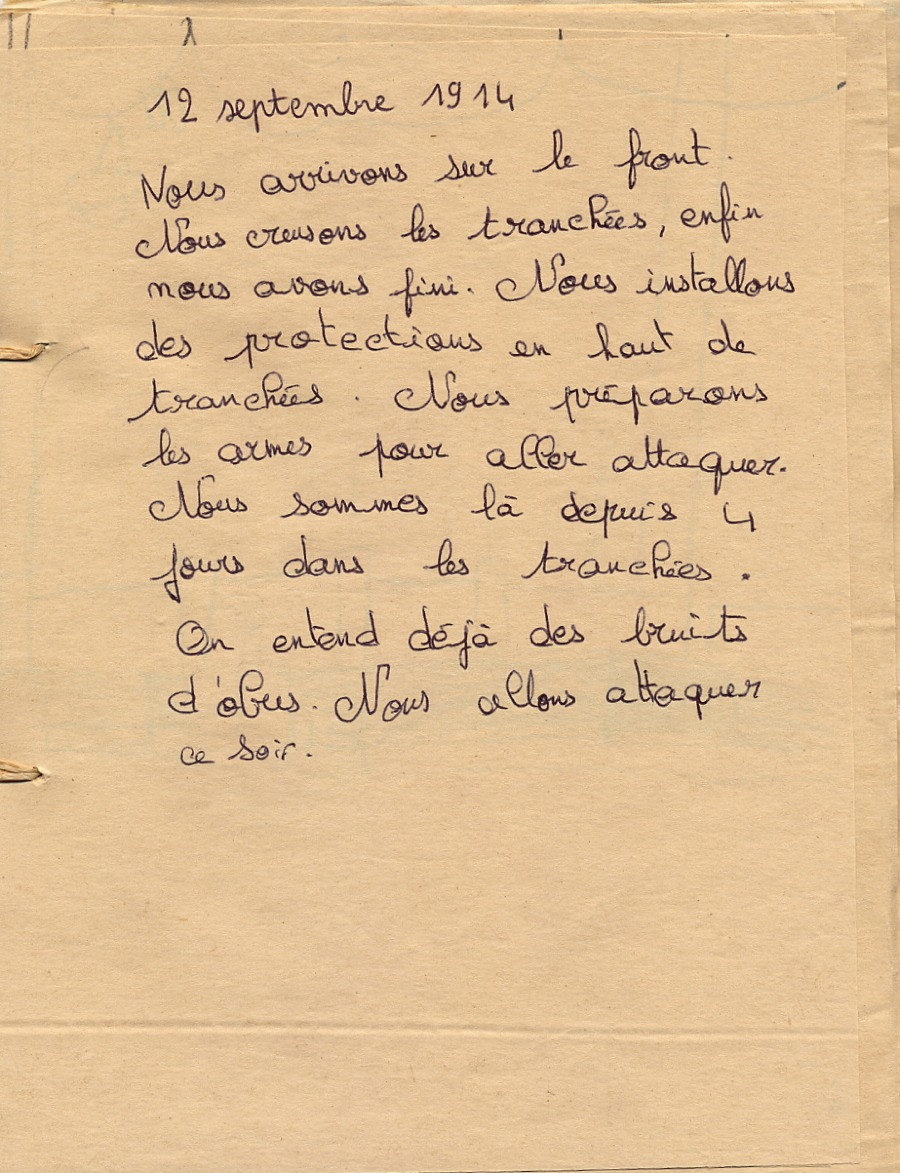 12 septembre 1914
Nous arrivons sur le front.
Nous creusons les tranchées, enfin
nous avons fini. Nous installons
des protections en haut de
tranchées. Nous préparons
les armes pour aller attaquer.
Nous sommes là depuis 4
jours dans les tranchées.
On entend déjà des bruits
d'obus. Nous allons attaquer
ce soir.